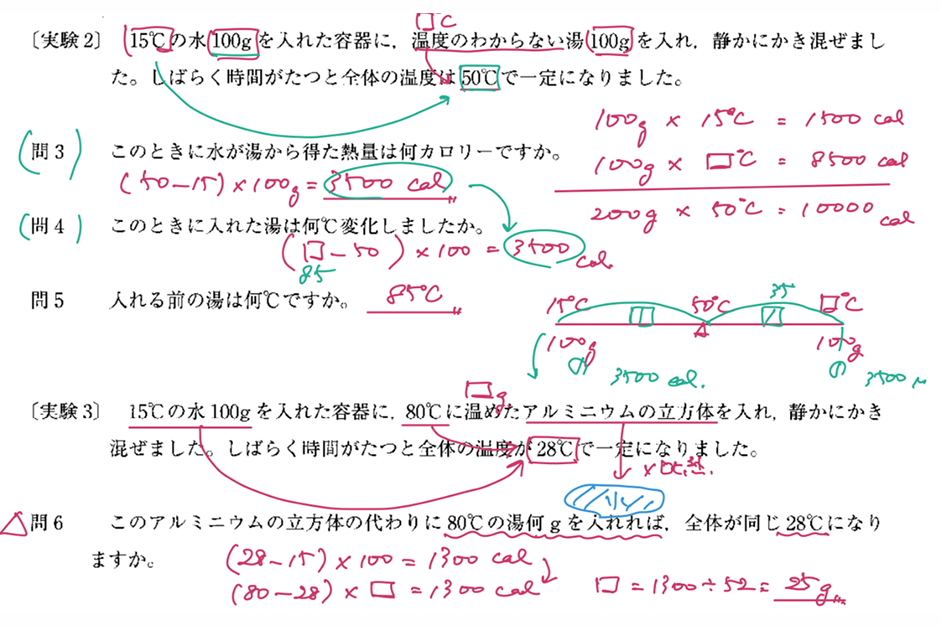 □℃
〔実験2〕 15℃の水100gを入れた容器に，温度のわからない湯100gを入れ，静かにかき混ぜまし
た。しばらく時間がたつと全体の温度は50℃で一定になりました。
100g × 15℃ = 1500 cal
問3 このときに水が湯から得た熱量は何カロリーですか。
100g × □℃ = 8500 cal
(50-15)×100g = 3500 cal
200g × 50℃ = 10000 cal
問4 このときに入れた湯は何℃変化しましたか。
(□-50)×100 = 3500 cal
85
問5 入れる前の湯は何℃ですか。 85℃
15℃ 1 50℃ 35 1 □℃
100g 100g
3500 cal. 3500
□g
〔実験3〕 15℃の水100gを入れた容器に，80℃に温めたアルミニウムの立方体を入れ，静かにかき
混ぜました。しばらく時間がたつと全体の温度が28℃で一定になりました。
×比熱.
△問6 このアルミニウムの立方体の代わりに80℃の湯何gを入れれば，全体が同じ28℃になり
ますか。
(28-15)×100 = 1300 cal
(80-28)×□ = 1300 cal □ = 1300÷52 = 25g